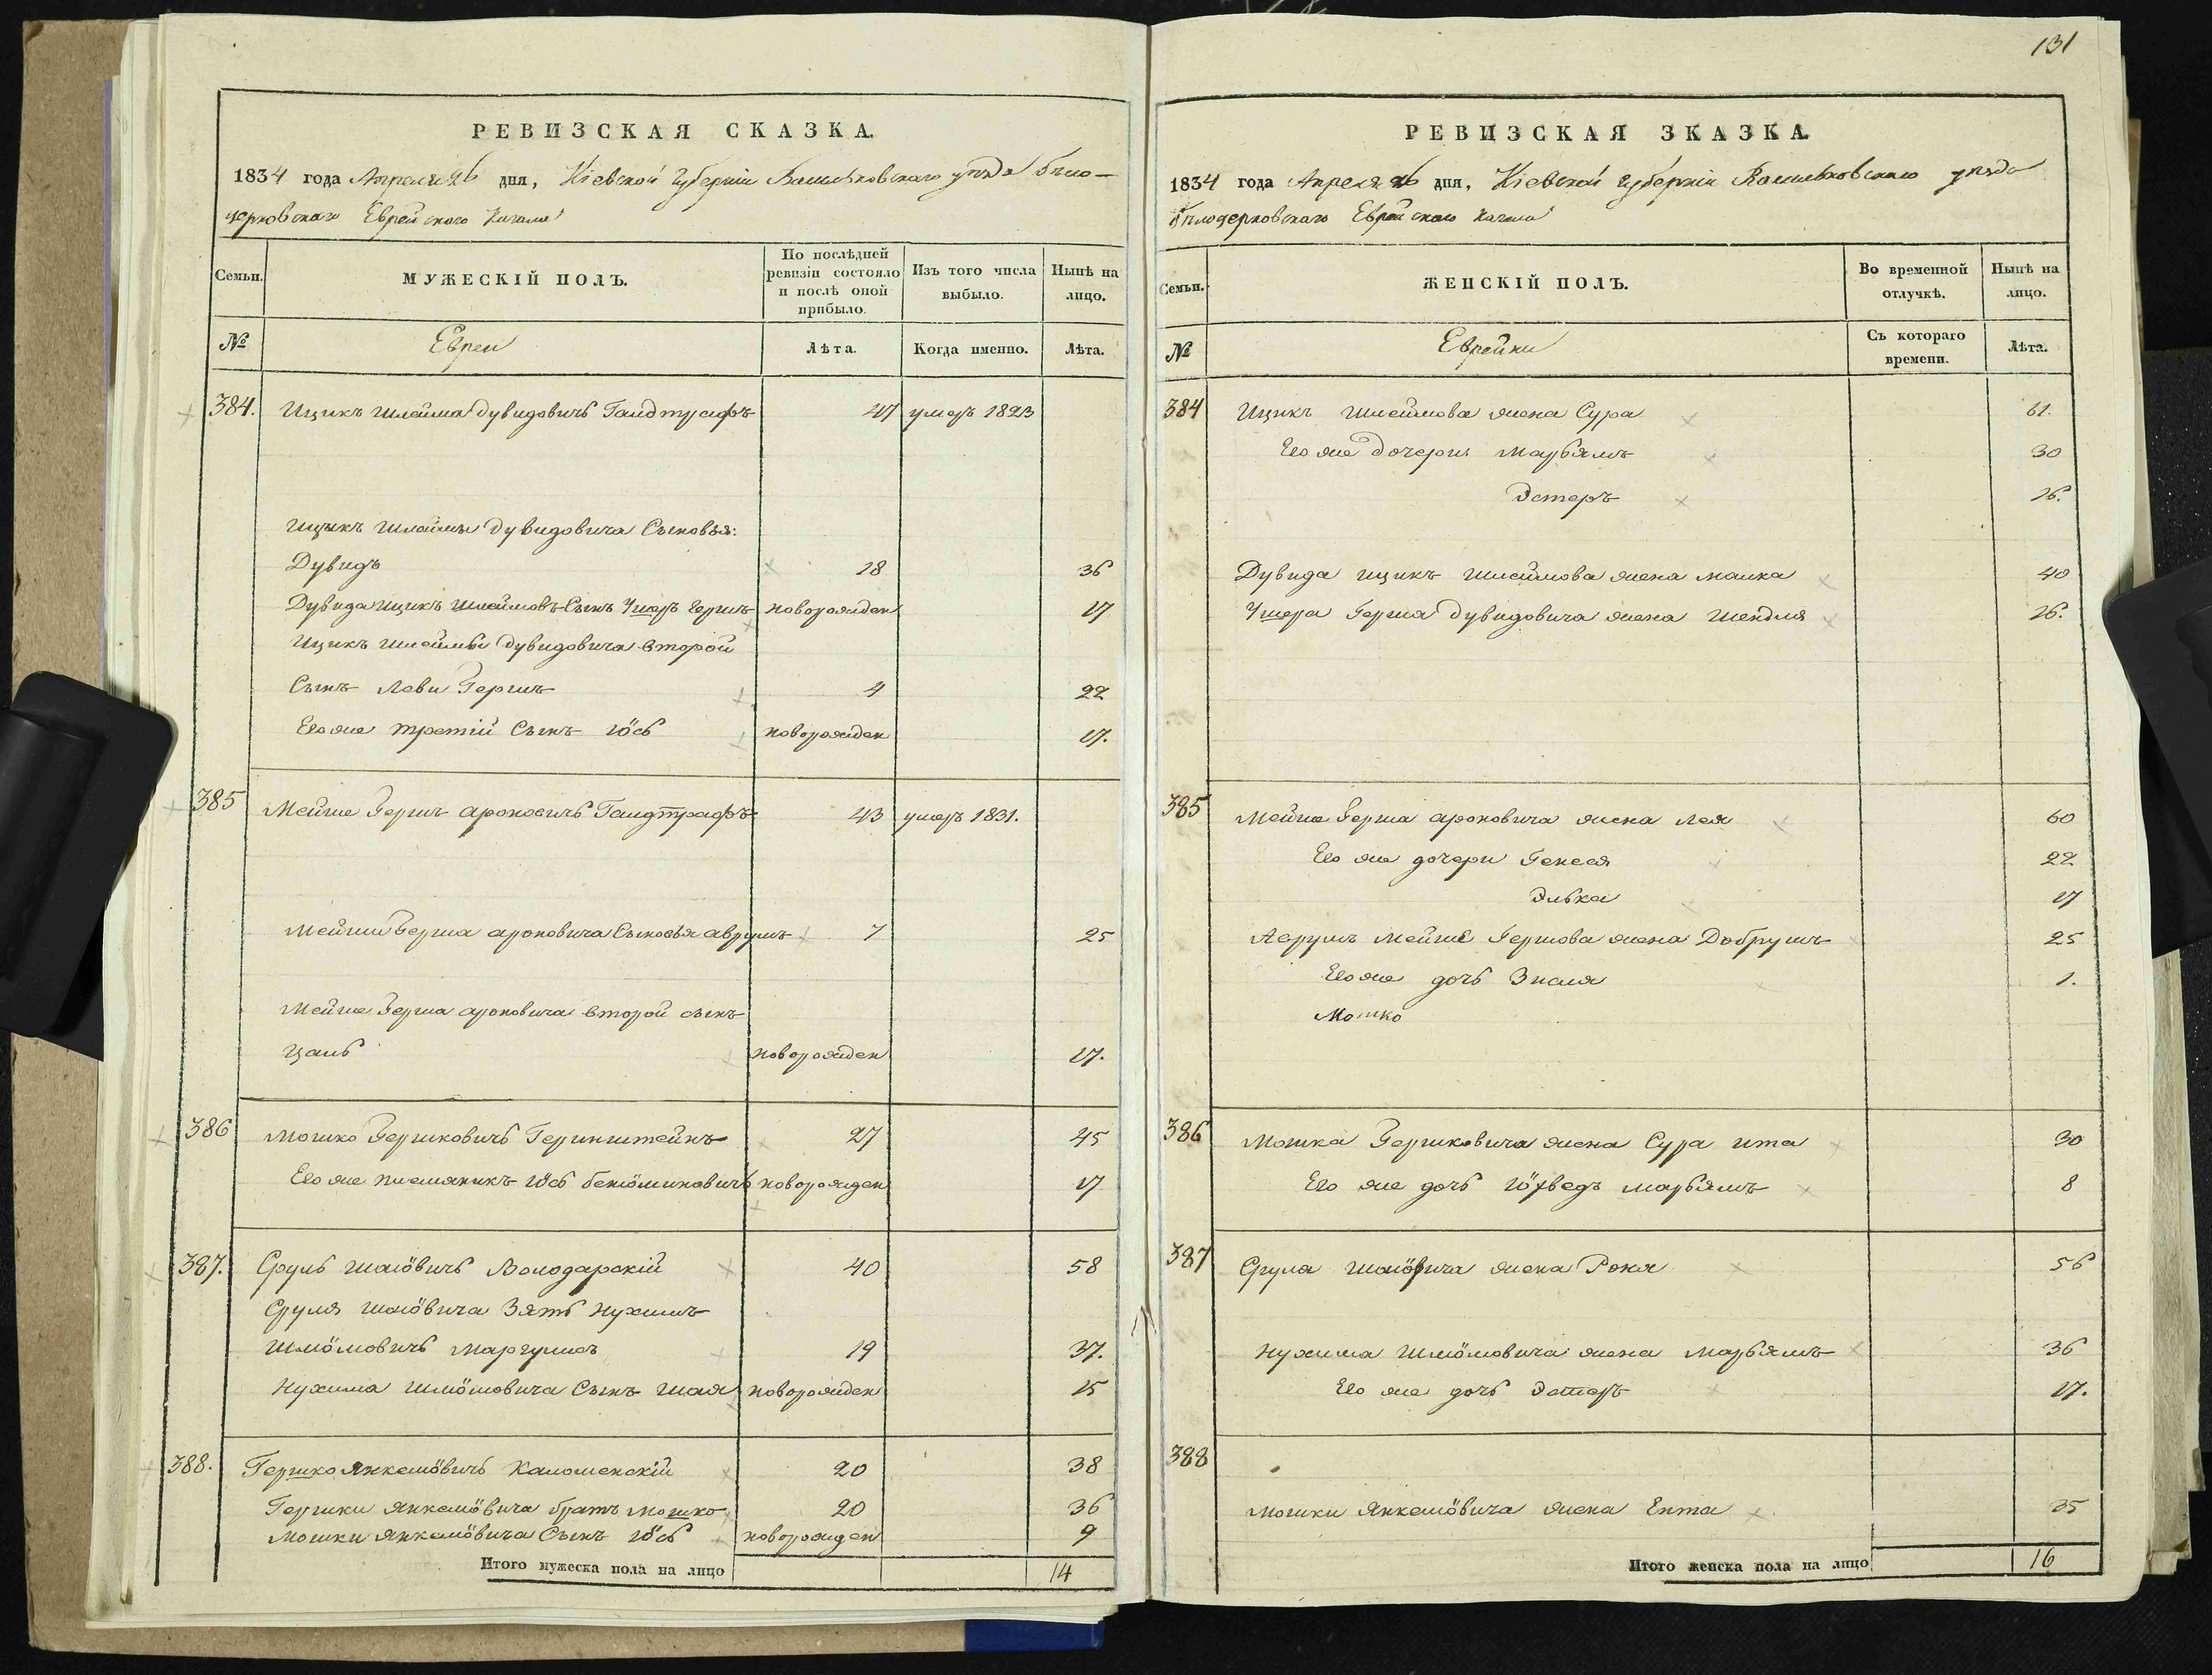 131
РЕВИЗСКАЯ СКАЗКА.
1834 года Апреля 26 дня, Кіевской Губерніи Васильковскаго уезда бѣло-
церковскаго Еврейскаго Кагала
Семьи. МУЖЕСКІЙ ПОЛЪ. По послѣдней ревизіи состояло и послѣ оной прибыло. Изъ того числа выбыло. Нынѣ на лицо.
№ Евреи Лѣта. Когда именно. Лѣта.
384. Ицикъ Шлейма Дувидовичь 47 умеръ 1823
Ицикъ Шлеймы Дувидовича Сыновья:
Дувидъ 18 36
Дувида Ицикъ Шлеймовъ Сынъ Ушеръ Гершъ новорожден 17
Ицикъ Шлеймы Дувидовича второй
Сынъ Леви Гершъ 4 22
Его же третій Сынъ Іось новорожден 17.
385 Мейше Гершъ Ароновичь 43 умеръ 1831.
Мейши Герша Ароновича Сыновья Аврумъ 7 25
Мейше Герша Ароновича второй сынъ
Цаль новорожден 17.
386 Мошко Гершковичь Геринштейнъ 27 45
Его же племяникъ Іось Беніоминовичь новорожден 17
387. Сруль Шаіовичь Володарскій 40 58
Сруля Шаіовича Зять Нухимъ
Шліомовичь Маргулисъ 19 37.
Нухима Шліомовича Сынъ Шая новорожден 15
388. Гершко Янкеліовичь Каломенскій 20 38
Гершки Янкеліовича братъ Мошко 20 36
Мошки Янкеліовича Сынъ Іось новорожден 9
Итого мужеска пола на лицо 14
РЕВИЗСКАЯ ЗКАЗКА.
1834 года Апреля 26 дня, Кіевской Губерніи Васильковскаго уезда
бѣлоцерковскаго Еврейскаго Кагала
Семьи. ЖЕНСКІЙ ПОЛЪ. Во временной отлучкѣ. Нынѣ на лицо.
№ Еврейки Съ котораго времени. Лѣта.
384 Ицикъ Шлеймова жена Сура 61.
Его же дочери Марьямъ 30
Эстеръ 26.
Дувида Ицикъ Шлеймова жена Малка 40
Ушера Герша Дувидовича жена Шендля 26.
385 Мейше Герша Ароновича жена Лея 60
Его же дочери Генеся 22
Элька 17
Аврумъ Мейше Гершова жена Добрушъ 25
Его же дочь Зналя 1.
Мошко
386 Мошка Гершковича жена Сура Ита 30
Его же дочь Іохведъ Марьямъ 8
387 Сруля Шаіовича жена Роня 56
Нухима Шліомовича жена Марьямъ 36
Его же дочь Эстеръ 17.
388
Мошки Янкеліовича жена Ента 35
Итого женска пола на лицо 16